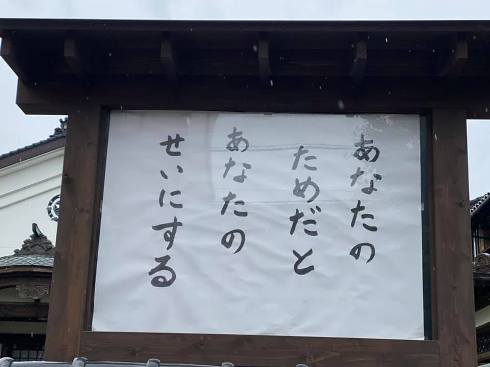 あなたの
ためだと
あなたの
せいにする